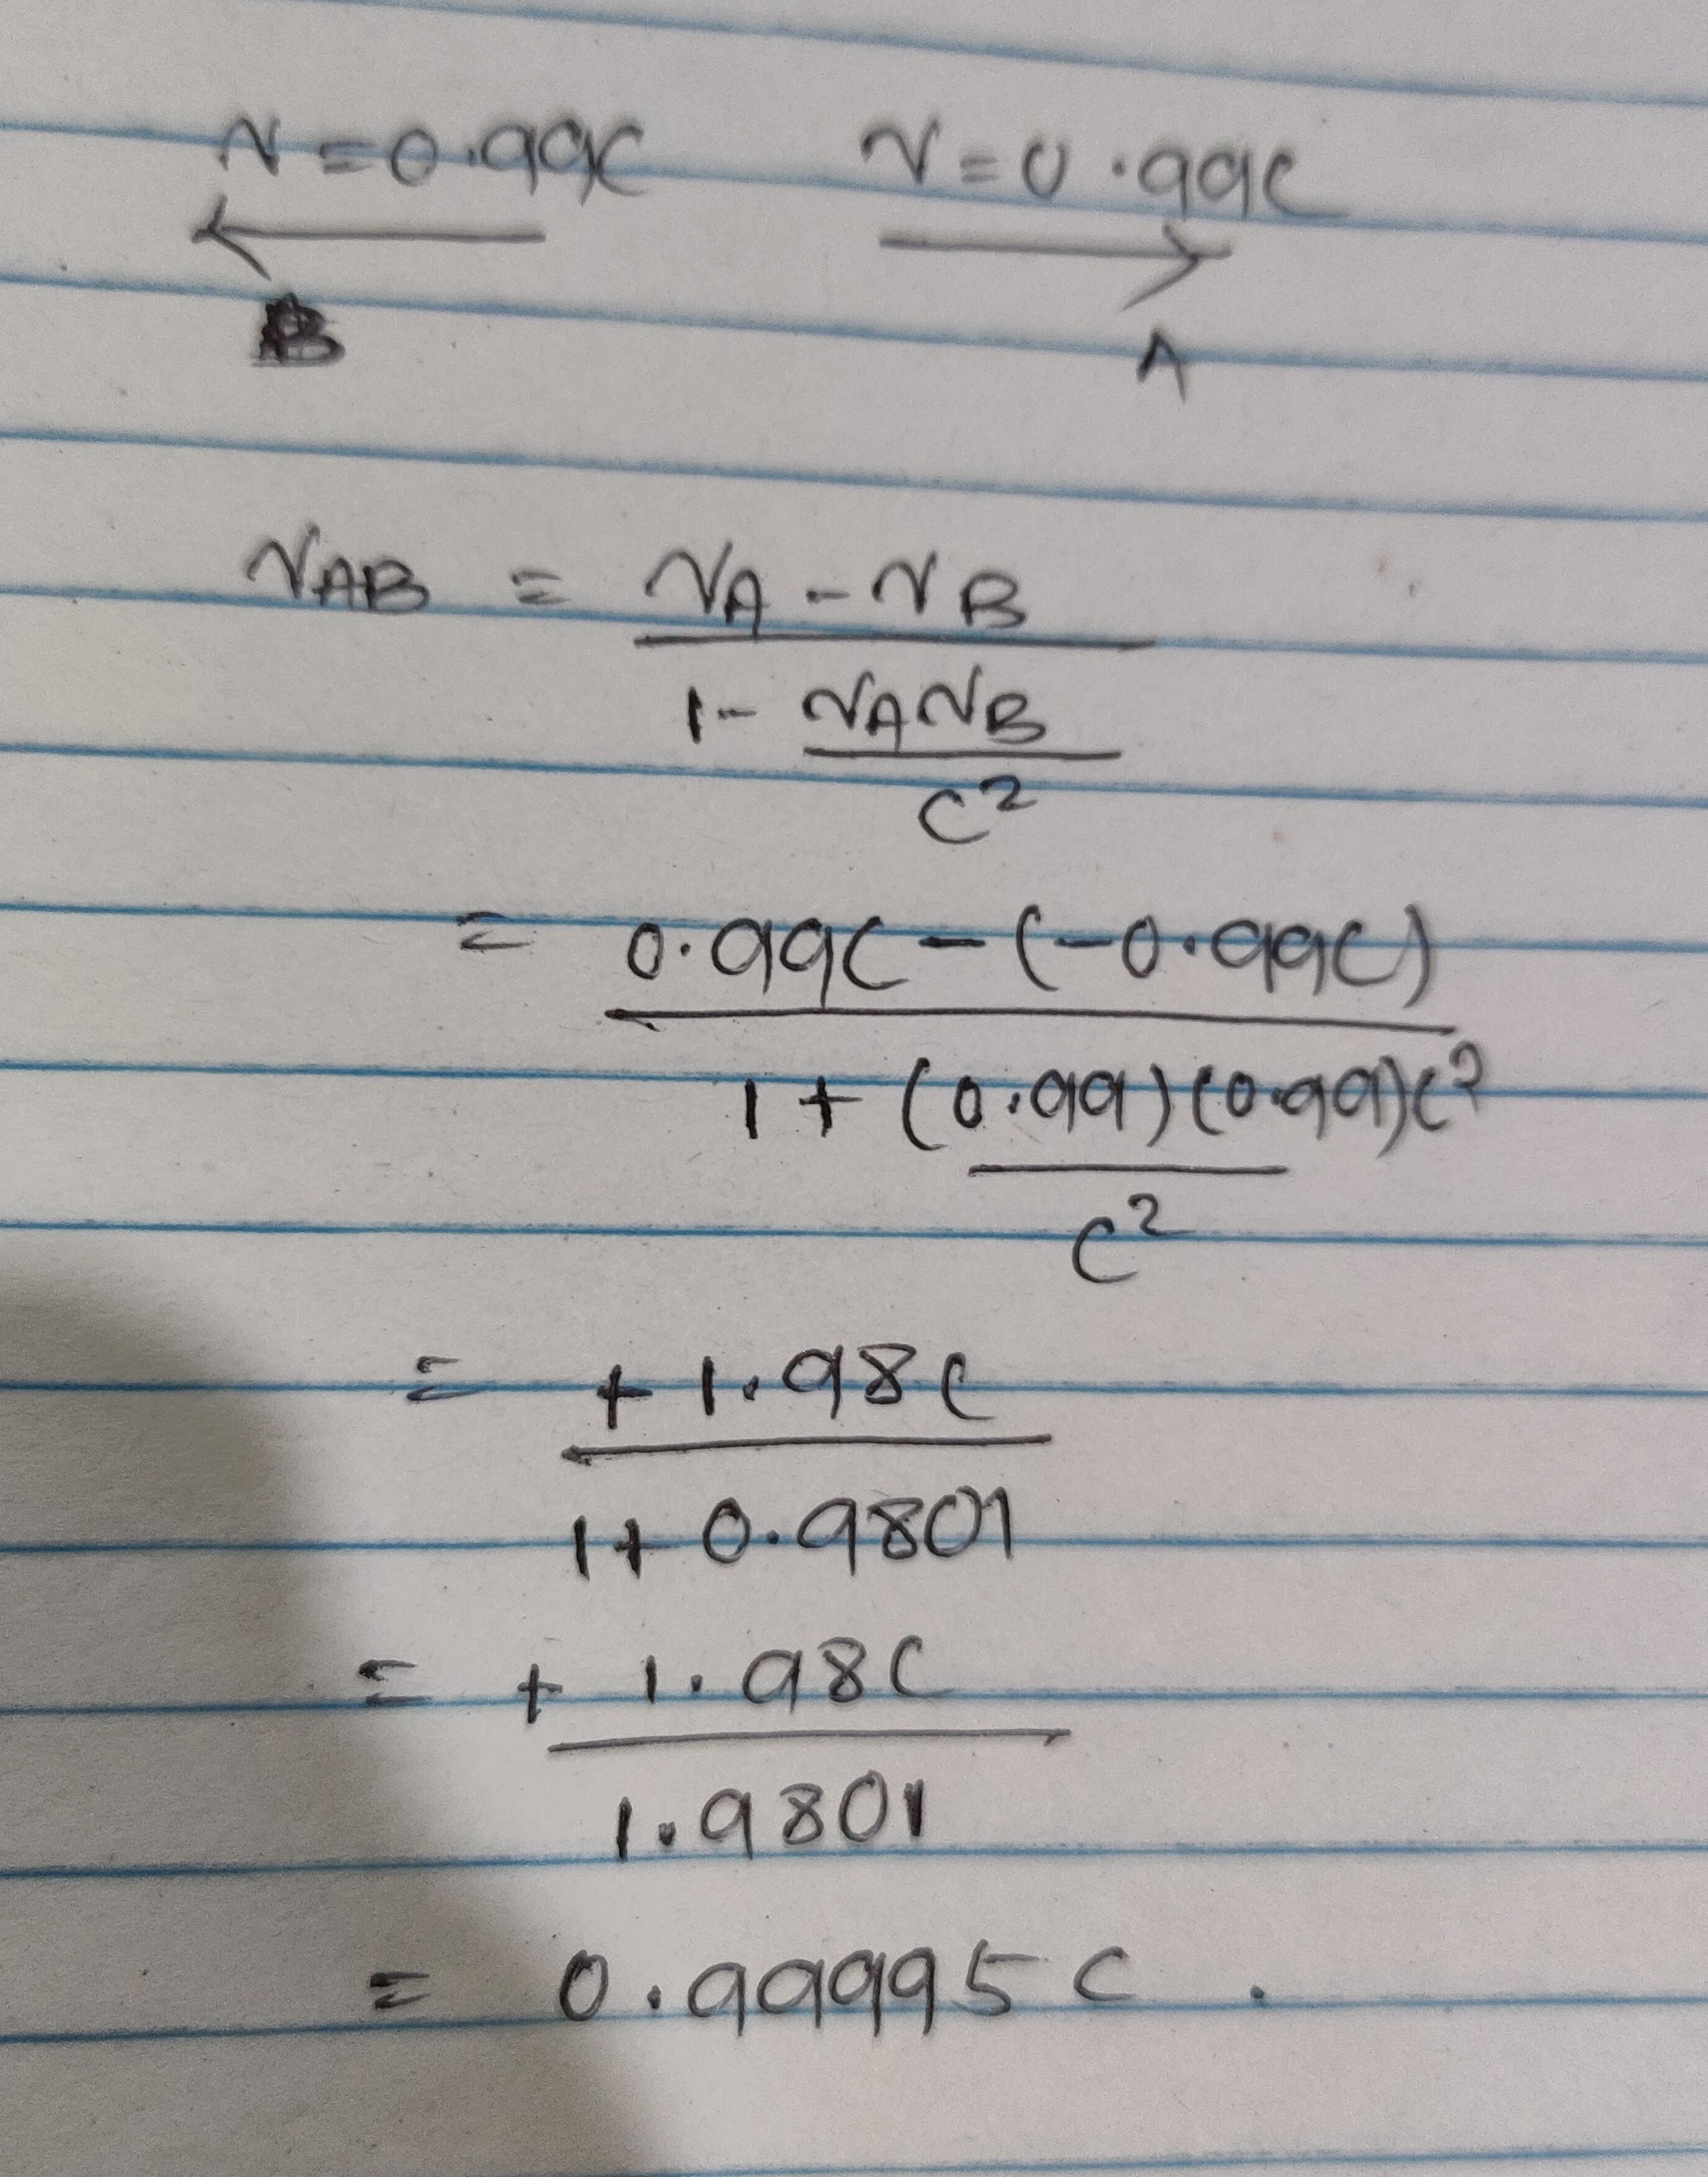 v = 0.99c v = 0.99c
B A
vAB = vA - vB
1 - vAvB
c²
= 0.99c - (-0.99c)
1 + (0.99)(0.99)c²
c²
= + 1.98c
1 + 0.9801
= + 1.98c
1.9801
= 0.99995 c .